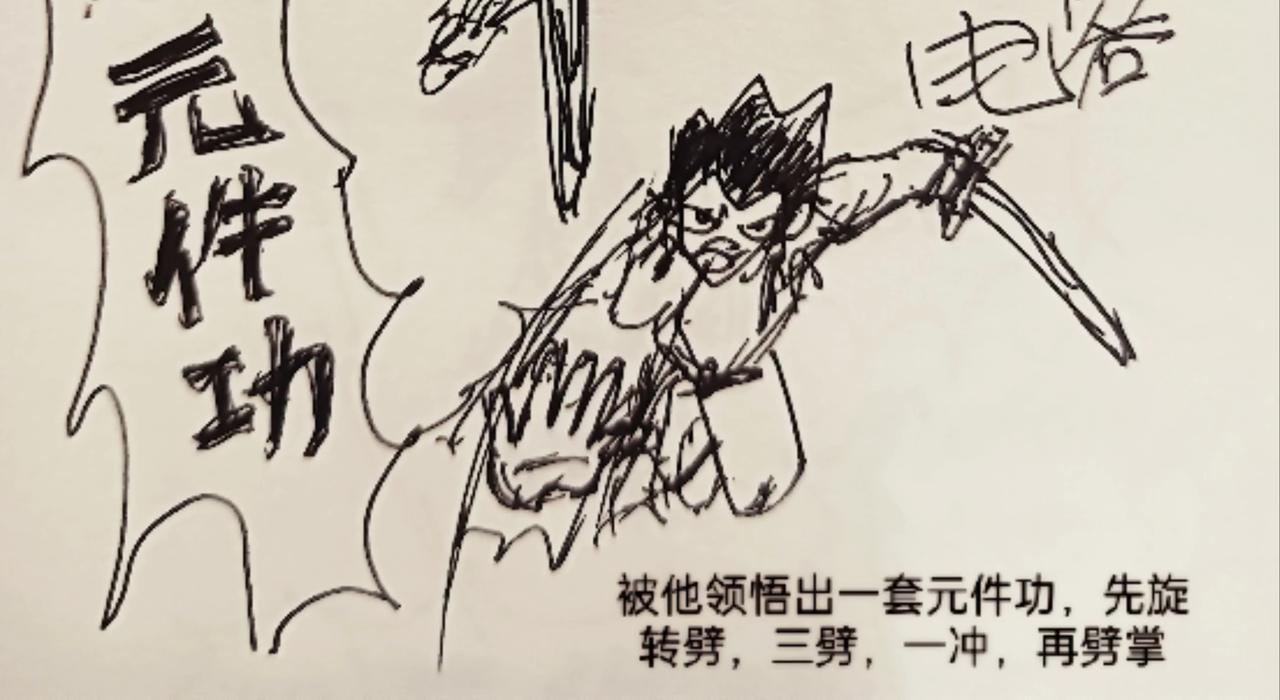 元件功
电路
被他领悟出一套元件功，先旋
转劈，三劈，一冲，再劈掌